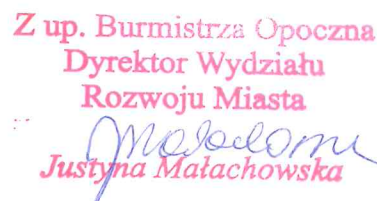 Z up. Burmistrza Opoczna
Dyrektor Wydziału
Rozwoju Miasta
Justyna Małachowska